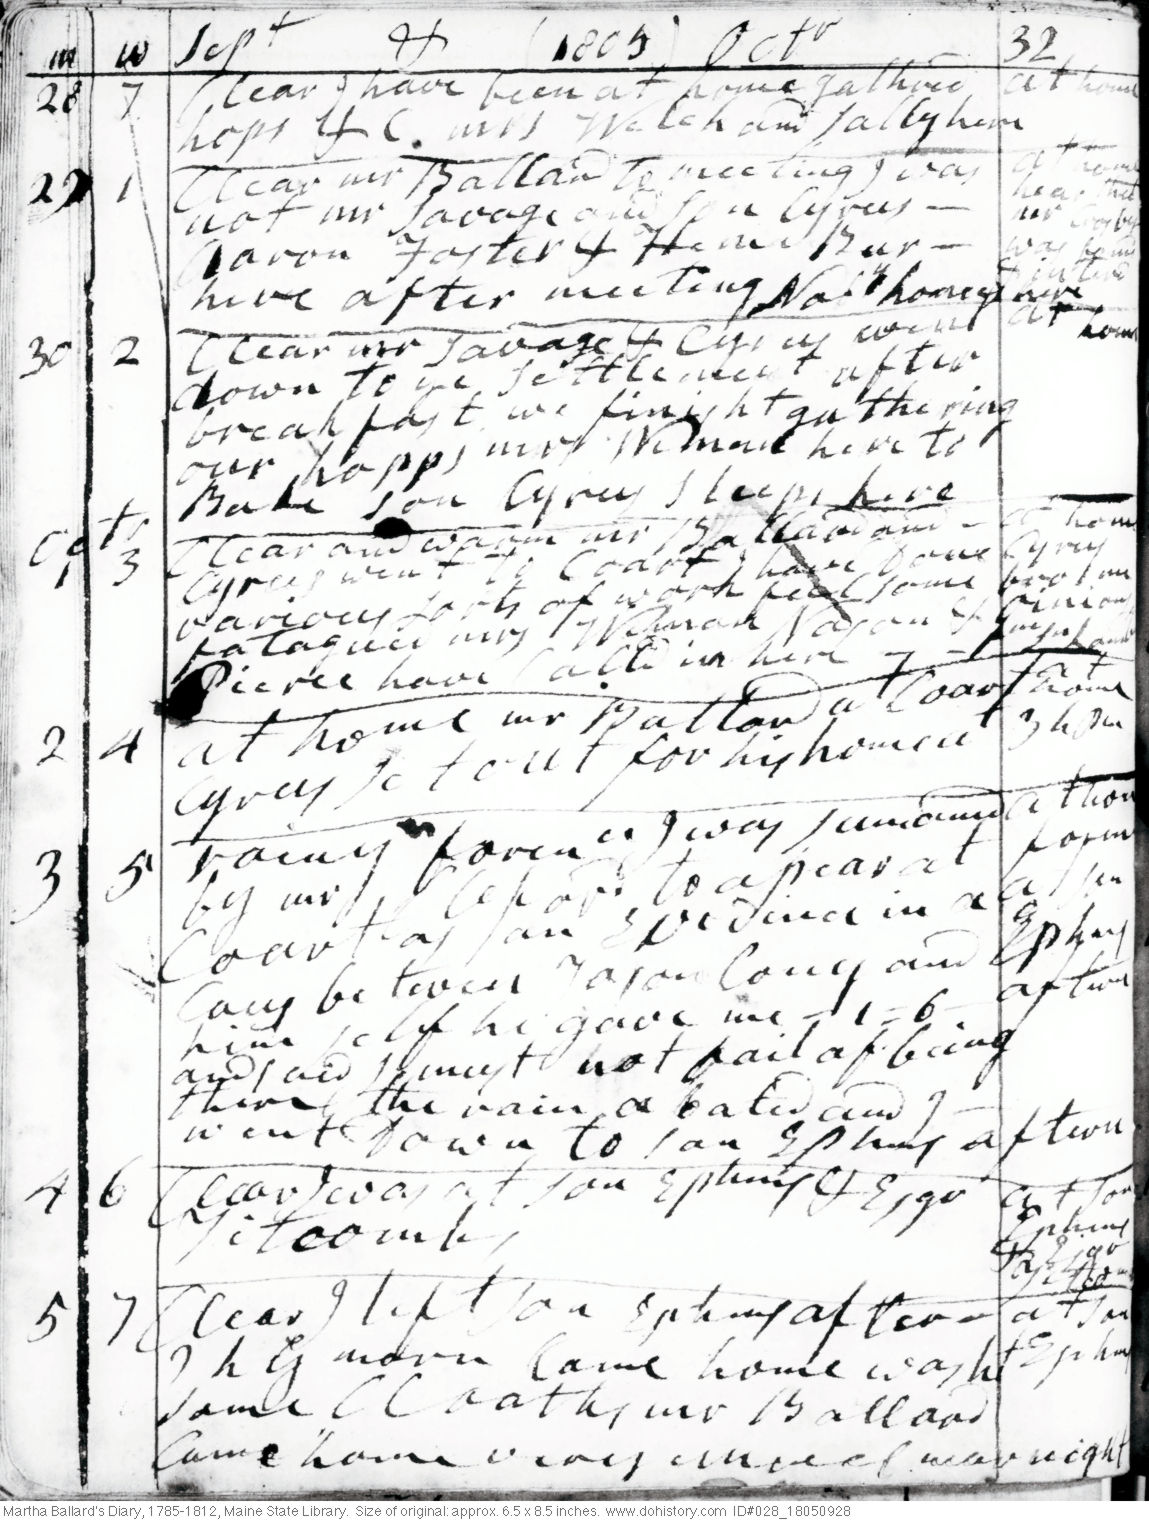 m w Sept & (1805) Octr 32
28 7 Clear I have been at home gathred at home
hops &C. mrs Welch and Sally here
29 1 Clear mr Ballard to meeting I was at home
not mr Savage and son Cyrus —
Aaron Foster & Heme Bur — was
here after meeting honey here
30 2 Clear mr Savage & Cyrus went at home
down to ye settlement after
breakfast we finisht gathering
our hopps mrs Wiman here to
Bake son Cyrus sleeps here
Octr
1 3 Clear and warm mr Ballard and — at home
Cyrus went to Coart I have Done Cyrus
various sorts of work feel some
fatagued mrs Wiman Nason &
Pierce have Calld in here —
2 4 at home mr Ballard at Coart at home
Cyrus set out for his home at 3 h pm
3 5 rainy foren n I was sumand at home
by mr to apear at foren
Coart as an Evedince in a at son
Caus between Jason Cony and Ephms
him self he gave me — 1=6 — aftern
and said I must not fail of being
there the rain abated and I —
went Down to son Ephms aftern
4 6 Clear I was at son Ephms & Esqr at son
Titcombs Ephms
& Esqr
5 7 Clear I left son Ephms after — at son
9 h Ey morn Came home washt Ephms
some Cloaths mr Ballard
Came home very unwel near night
Martha Ballard's Diary, 1785-1812, Maine State Library. Size of original: approx. 6.5 x 8.5 inches. www.dohistory.com ID#028_18050928